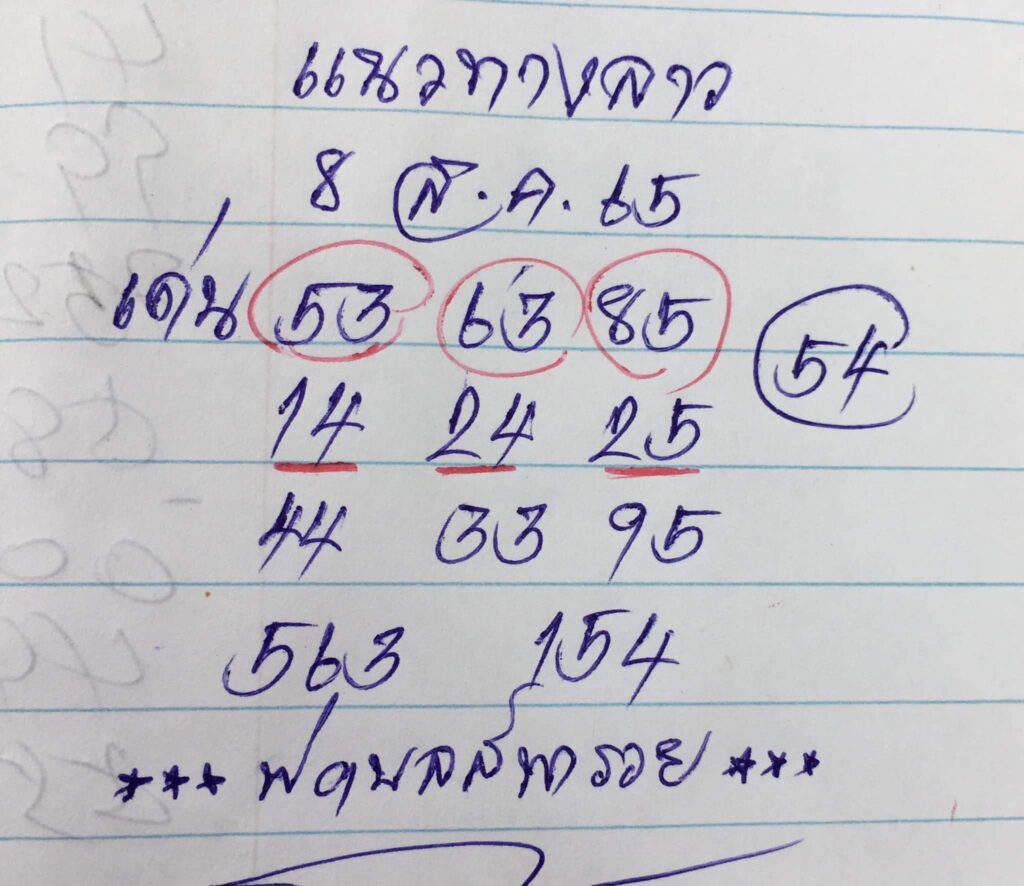 แนวทางลาว
8 ส.ค. 65
เด่น 53 63 85
54
14 24 25
44 33 95
563 154
*** ***